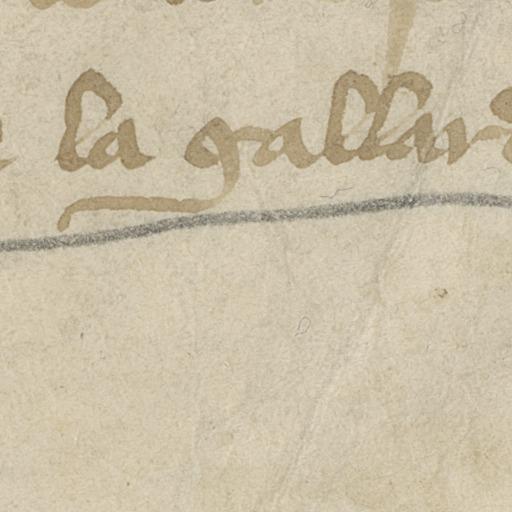 la gallar